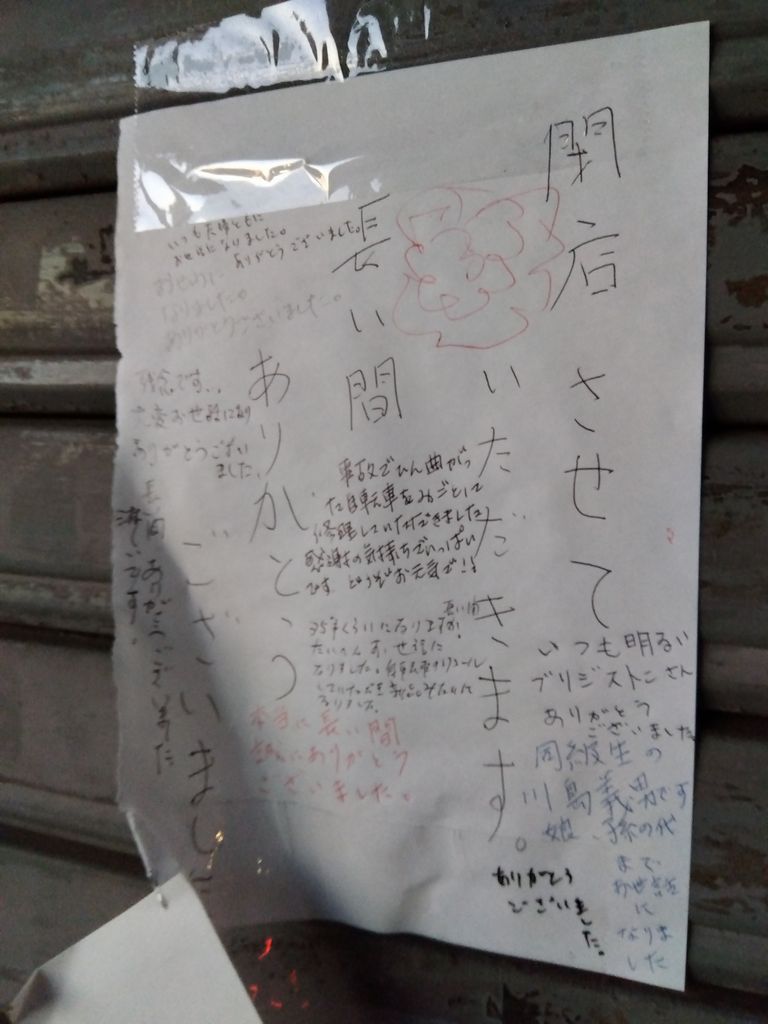 閉店させて
いただきます。
長い間
ありがとう
ございました
いつも夫婦ともに
お世話になりました。
ありがとうございました。
お世わに
なりました。
ありがとうございました。
残念です、、
大変お世話になり
ありがとうござい
ました。
長い間ありがとうございました
淋しいです。
事故でひん曲がっ
た自転車をみごとに
修理していただきました
感謝の気持ちでいっぱい
です どうぞお元気で!!
35年くらいになりますが
長い間
たいへんお世話に
なりました。
本当に長い間
ありがとう
ございました。
いつも明るい
ブリジストンさん
ありがとう
ございました
同級生の
川島義男です
娘、孫の代
まで
お世話
に
なりま
した
ありがとう
ございました。